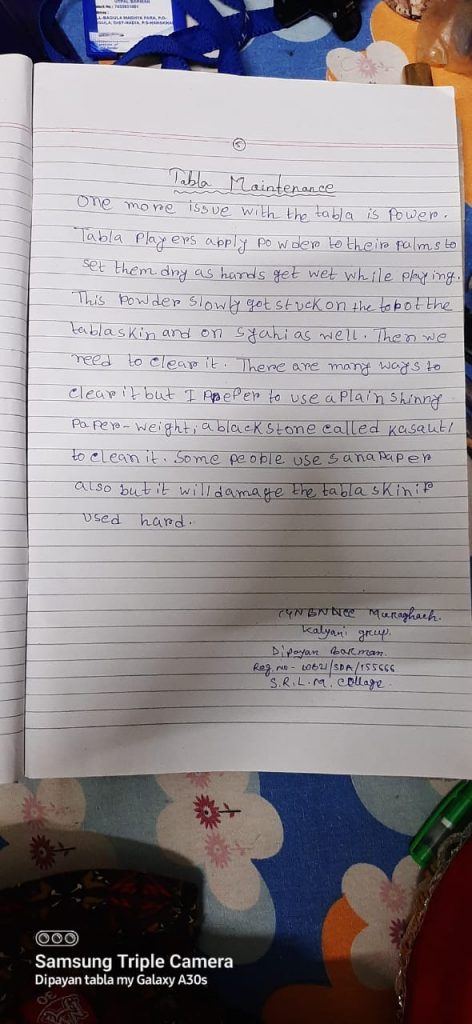 UTPAL BARMAN
5
Tabla Maintenance
One more issue with the tabla is Power.
Tabla Players apply Powder to their Palms to
set them dry as hands get wet while playing.
This Powder Slowly got stuck on the top of the
tabla skin and on Syahi as well. Then we
need to clear it. There are many ways to
clear it but I Preper to use a Plain Shinny
Paper-weight, a black stone called Kasauti
to clean it. Some people use Sana Paper
also but it will damage the tabla skin if
used hard.
Kalyani group.
Dipayan Barman.
S.R.L.M. College.
Samsung Triple Camera
Dipayan tabla my Galaxy A30s